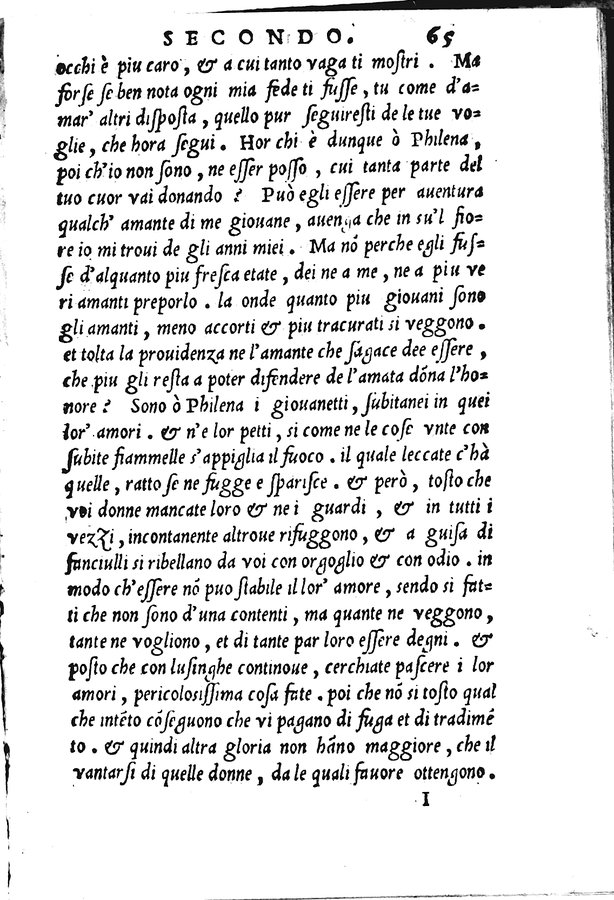 SECONDO. 65
occhi è piu caro, & a cui tanto vaga ti mostri. Ma
forse se ben nota ogni mia fede ti fusse, tu come d'a=
mar' altri disposta, quello pur seguiresti de le tue vo=
glie, che hora segui. Hor chi è dunque ò Philena,
poi ch'io non sono, ne esser posso, cui tanta parte del
tuo cuor vai donando? Può egli essere per auentura
qualch' amante di me giouane, auenga che in su'l fio=
re io mi troui de gli anni miei. Ma nõ perche egli fus=
se d'alquanto piu fresca etate, dei ne a me, ne a piu ve
ri amanti preporlo. la onde quanto piu giouani sono
gli amanti, meno accorti & piu tracurati si veggono.
et tolta la prouidenza ne l'amante che sagace dee essere,
che piu gli resta a poter difendere de l'amata dõna l'ho=
nore? Sono ò Philena i giouanetti, subitanei in quei
lor' amori. & n'e lor petti, si come ne le cose vnte con
subite fiammelle s'appiglia il fuoco. il quale leccate c'hà
quelle, ratto se ne fugge e sparisce. & però, tosto che
voi donne mancate loro & ne i guardi, & in tutti i
vezzi, incontanente altroue rifuggono, & a guisa di
fanciulli si ribellano da voi con orgoglio & con odio. in
modo ch'essere nõ puo stabile il lor' amore, sendo si fat=
ti che non sono d'una contenti, ma quante ne veggono,
tante ne vogliono, et di tante par loro essere degni. &
posto che con lusinghe continoue, cerchiate pascere i lor
amori, pericolosissima cosa fate. poi che nõ si tosto qual
che intẽto cõseguono che vi pagano di fuga et di tradimẽ
to. & quindi altra gloria non hãno maggiore, che il
vantarsi di quelle donne, da le quali fauore ottengono.
I